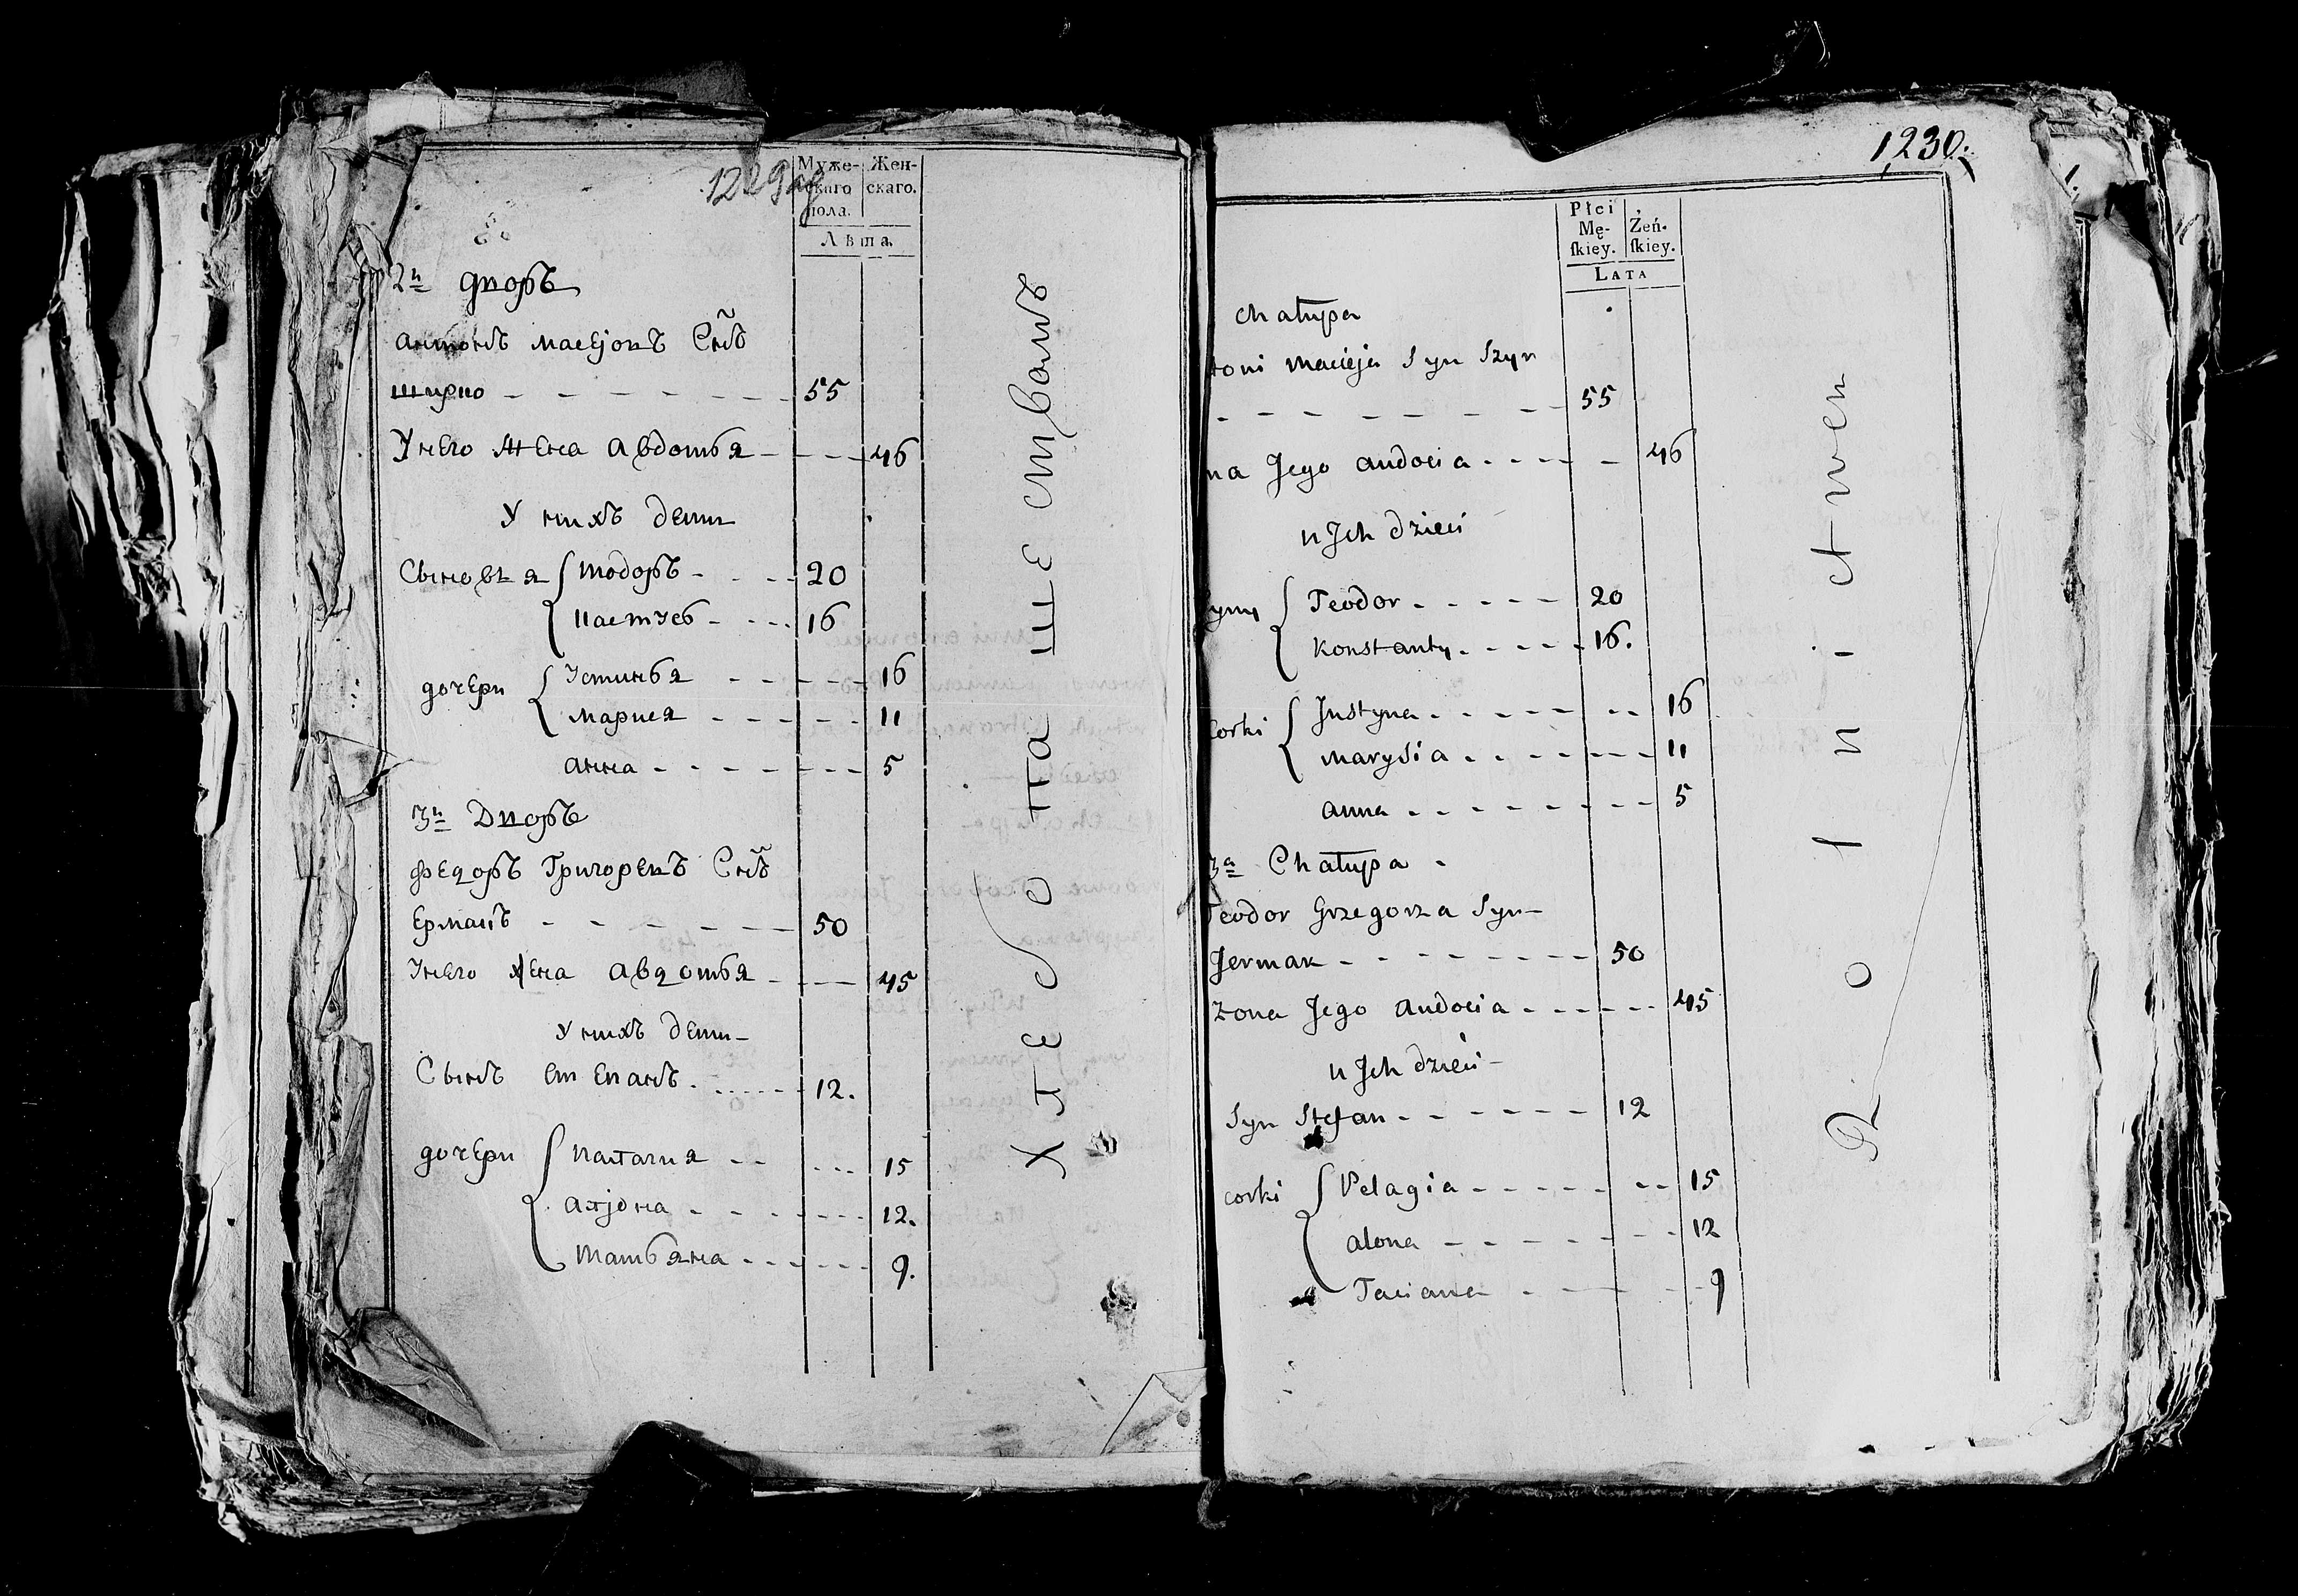 1229
Муже-
скаго
пола.
Жен-
скаго.
Лѣта.
2й дворъ
антонъ мацѣювъ Снъ
ширко 55
У него жена авдотья 46
У нихъ дети
Сыновья тодоръ 20
Кастусь 16
дочери Устинья 16
марися 11
анна 5
3й Дворъ
федоръ Григоревъ Снъ
Ермакъ 50
У него жена авдотья 45
У нихъ дети
Сынъ степанъ 12.
дочери палагия 15
алюна 12.
татьяна 9.
хлебопашествомъ
1230.
Płci
Mę-
ſkiey.
Żeń-
ſkiey.
LATA
chałupa
toni macieja Syn Szyr
55
na Jego audocia 46
u Jch dzieci
yny Teodor 20
Konstanty 16.
Corki Justyna 16
marysia 11
anna 5
3a Chałupa
Teodor Grzegorza Syn
Jermak 50
żona Jego audocia 45
u Jch dzieci
Syn Stefan 12
corki Pelagia 15
alona 12
Taciana 9
Rolnictwem